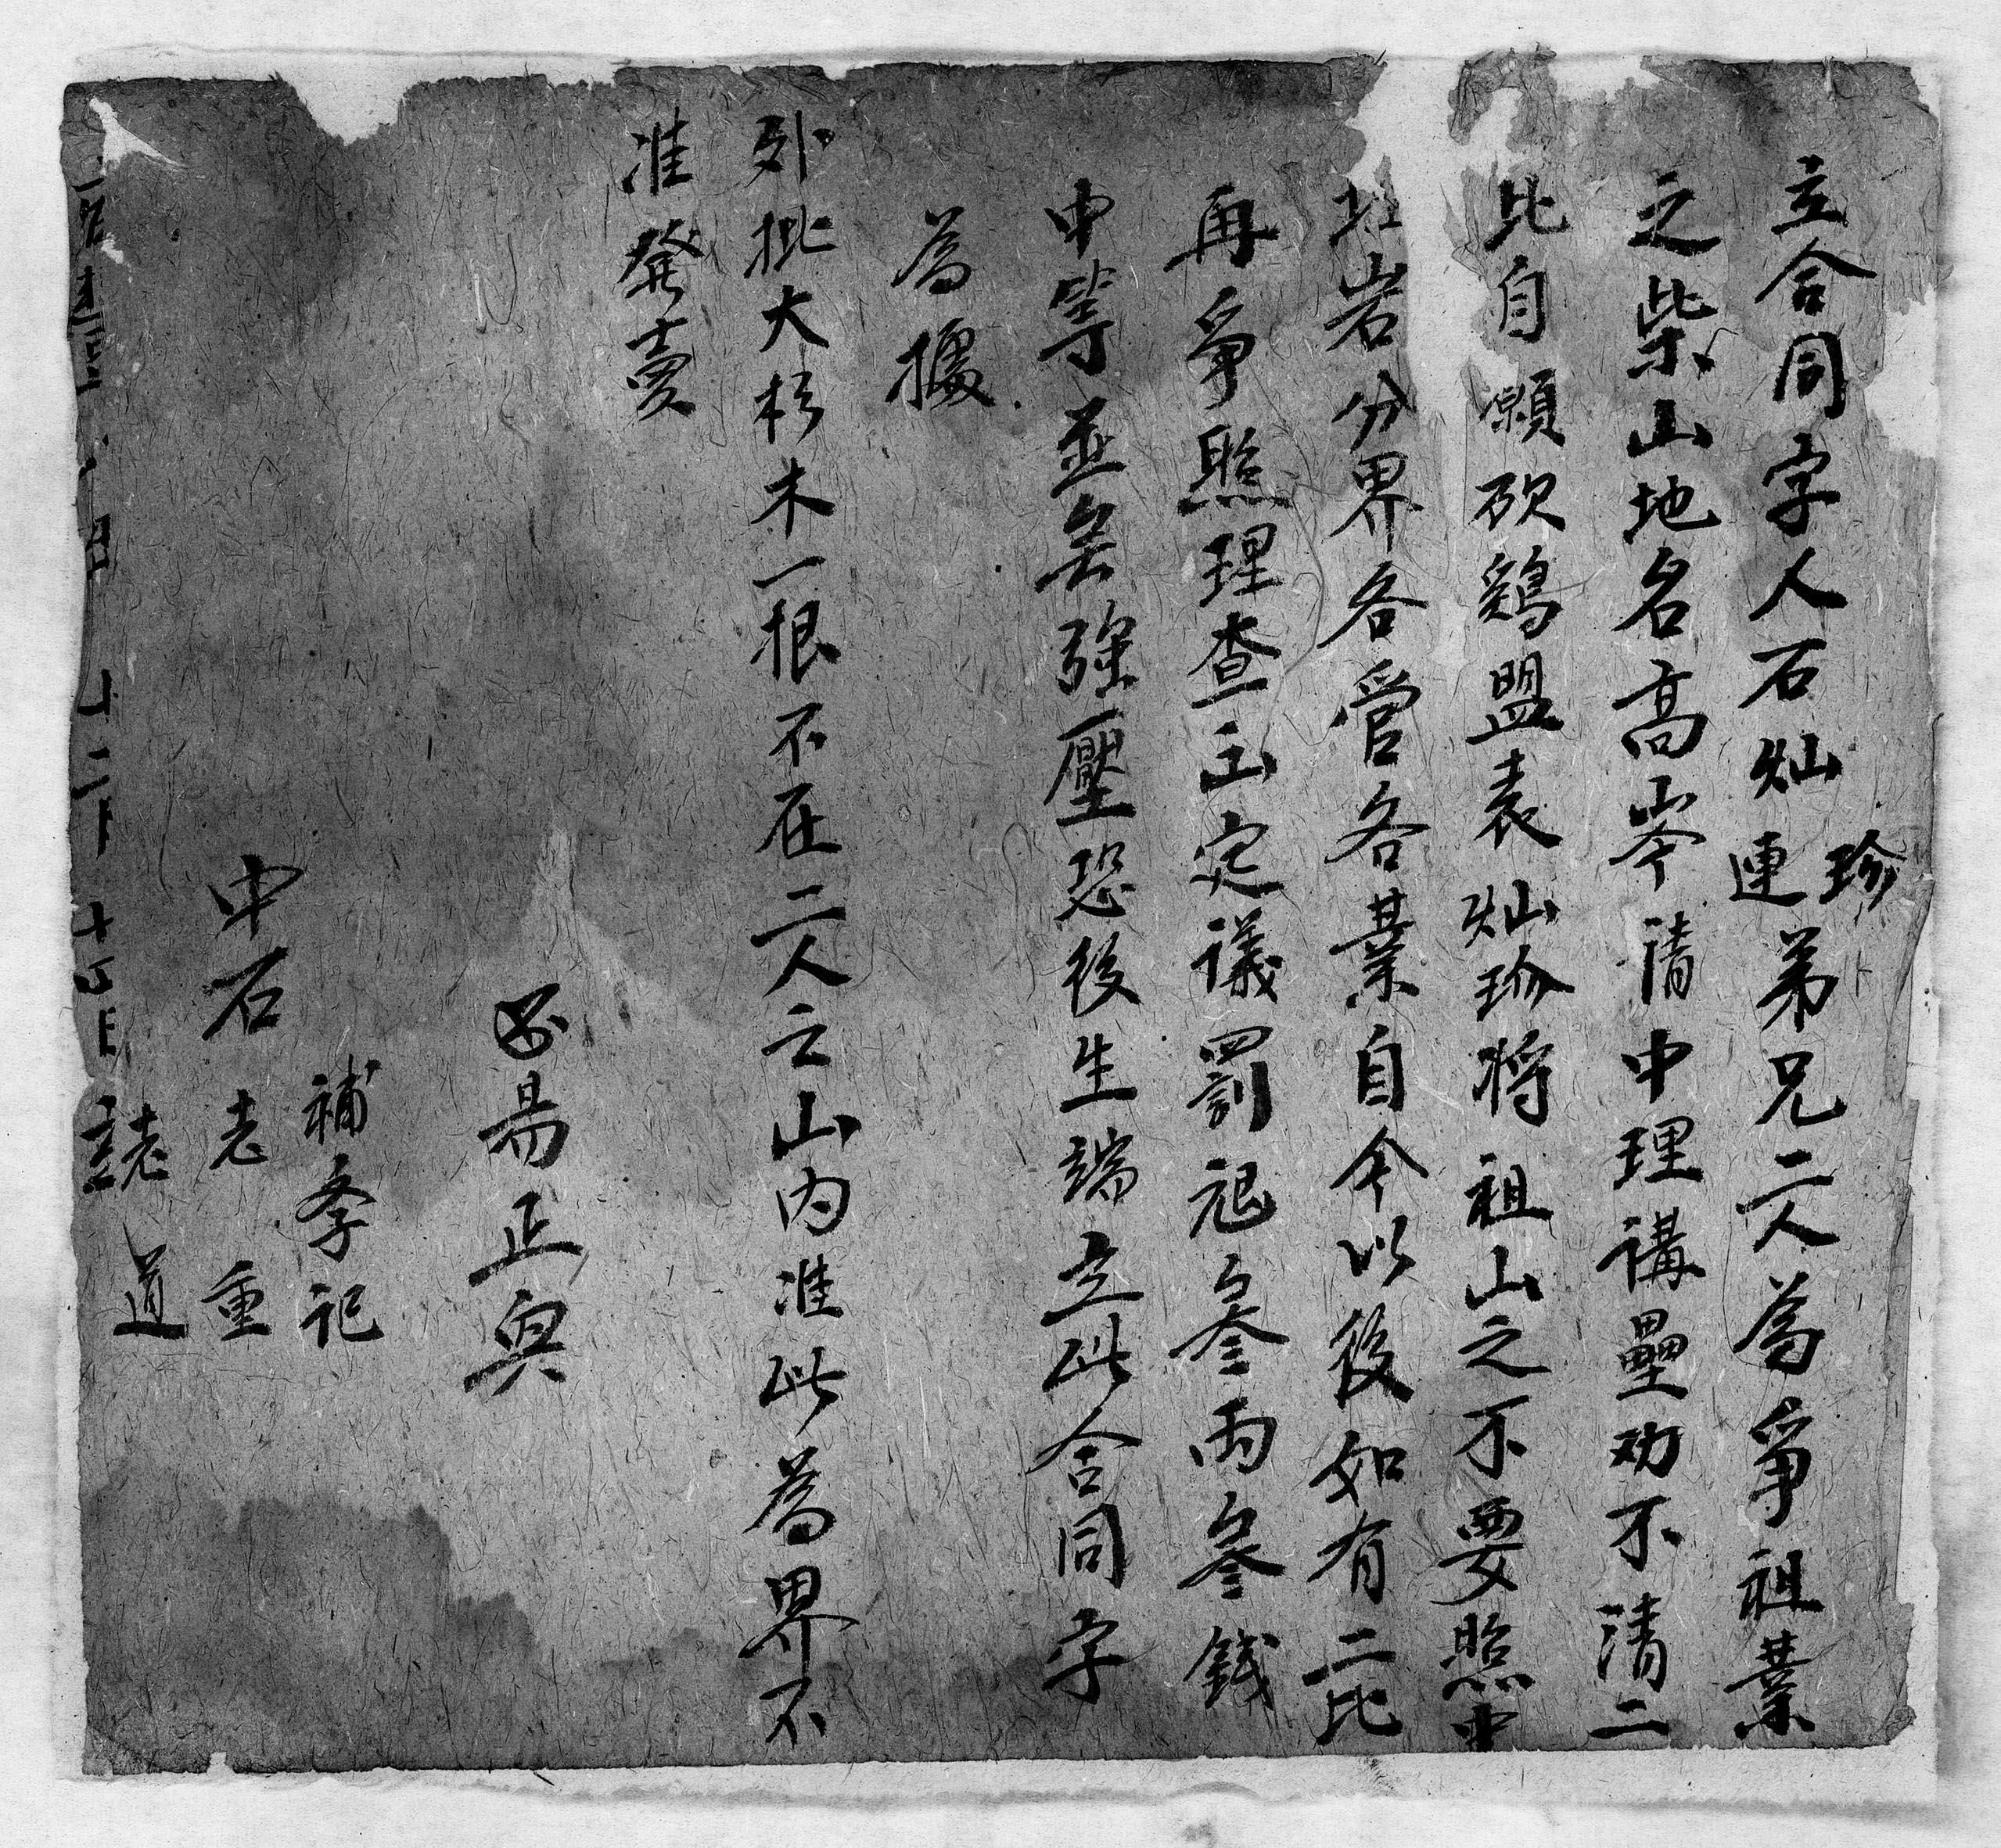 立合同字人石灿珍連弟兄二人為爭祖業
之柴山地名高岑請中理講壘劝不清二
比自願砍鷄盟表灿珍將祖山之不要照中
坵岩分界各管各業自今以後如有二比
再爭照理查出定議罰艮叄両叄錢
中等並無強壓恐後生端立此合同字
為據
外批大杉木一根不在二人之山内准此為界不
准發賣
易正興
補季記
中石老重
老道